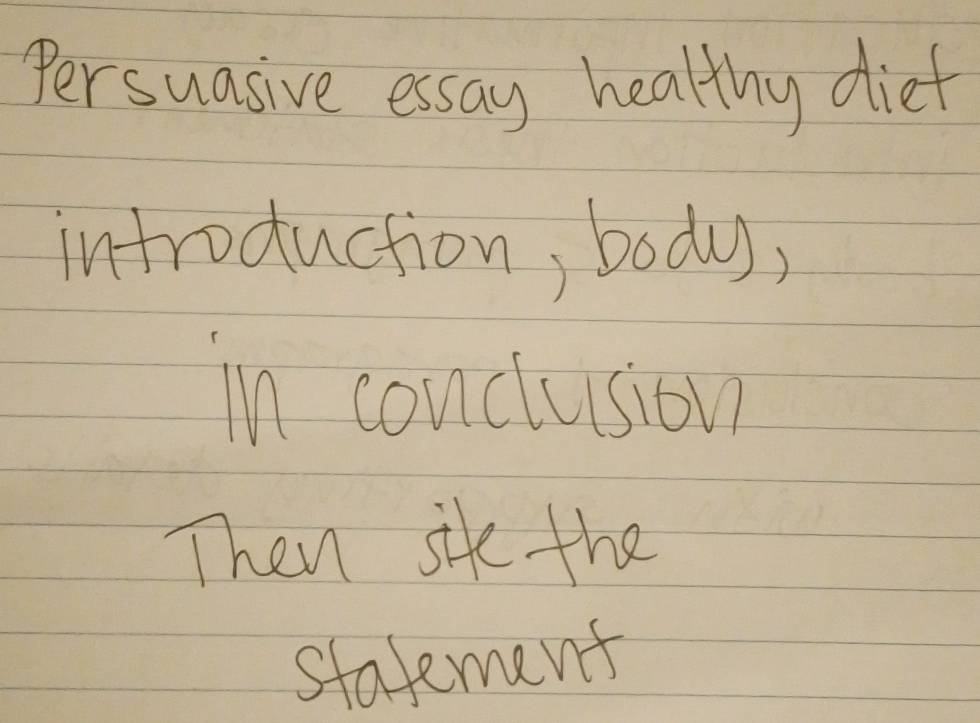 Persuasive essay healthy diet
introduction, body,
in conclusion
Then site the
statement